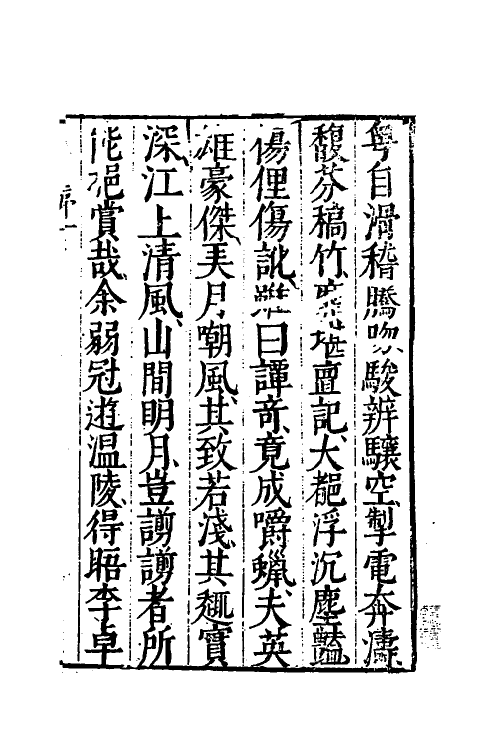 粤自滑稽騰吻駿辨驤空掣電奔濤
馥芬稿竹堪亶記大都浮沉塵豔
傷俚傷訛雖曰譚竒竟成嚼蠟夫英
雄豪傑美月嘲風其致若淺其趣寔
深江上清風山間明月豈謭謭者所
能挹賞哉余弱冠遊温陵得晤李卓
序一